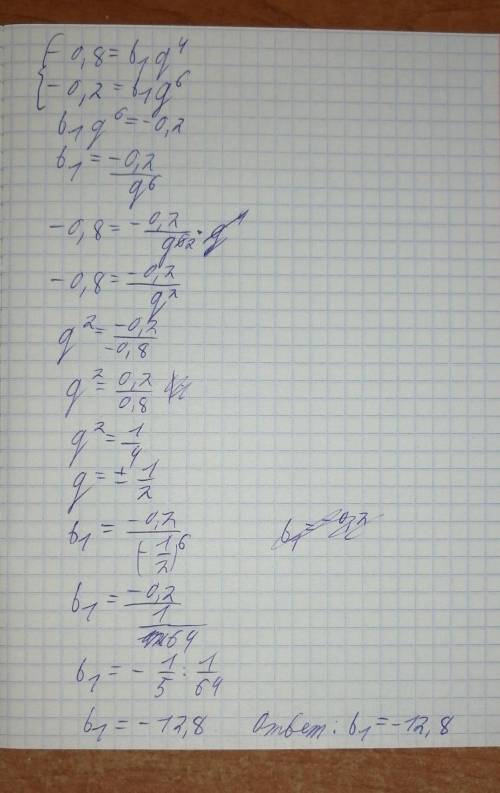 { -0,8 = b₁q⁴
-0,2 = b₁q⁶
b₁q⁶ = -0,2
b₁ = -0,2 / q⁶
-0,8 = -0,2 / q⁶² · q⁴
-0,8 = -0,2 / q²
q² = -0,2 / -0,8
q² = 0,2 / 0,8
q² = 1/4
q = ± 1/2
b₁ = -0,2 / (-1/2)⁶
b₁ = -0,2 / (1/64)
b₁ = - 1/5 : 1/64
b₁ = -12,8 Ответ: b₁ = -12,8